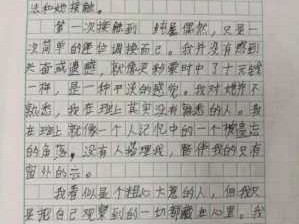 法和她接触。
第一次接触到 纯是偶然,只是一
次简单的座位调换而已。我并没有感到
失落或遗憾,就像买彩票时中了十元钱
一样,是一种平淡的感觉。我对她并不
熟悉,我在班上其实没有熟悉的人。我
在班上就像一个人记忆中的一个被遗忘
的角落,没有人搭理我,陪伴我的只有
窗外的云。
我看似是个粗心大意的人,但我只
是把自己观察到的一切都藏在心里。我